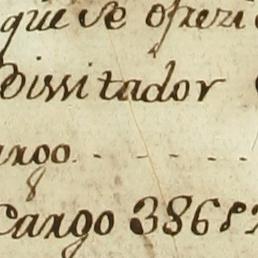 que se ofrezi
Vissitador
argo. - - - -
Cargo 3868